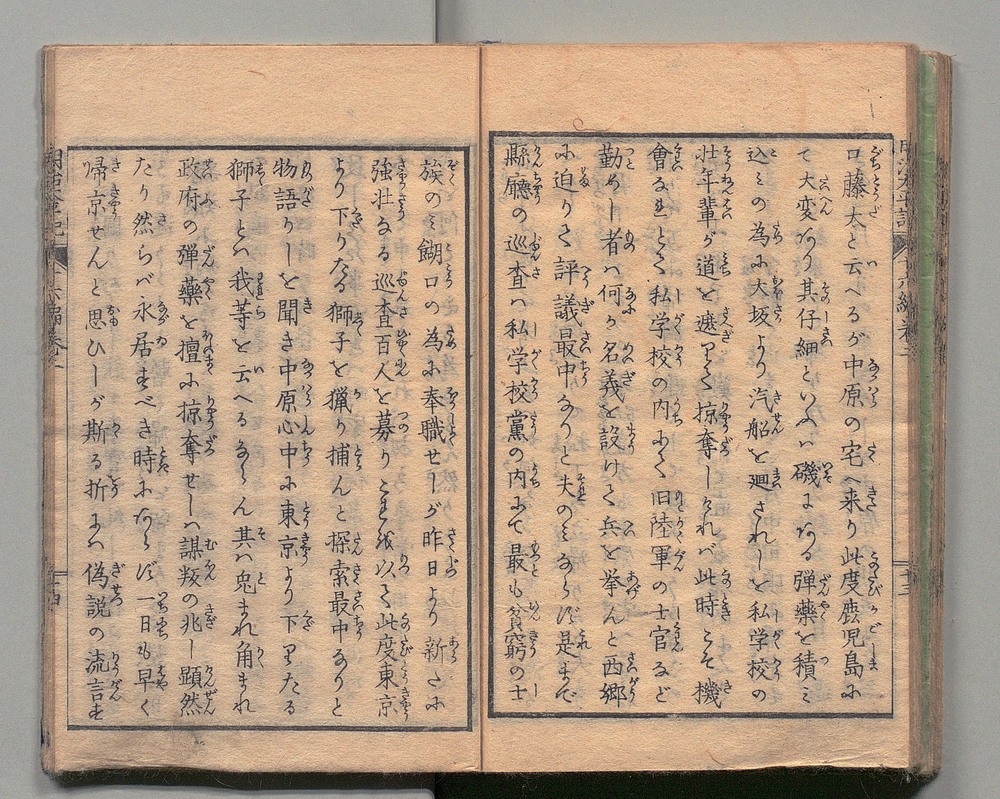 口藤太と云へるが中原の宅へ来り此度鹿児島に
て大変あり其仔細といふハ磯なる弾薬を積ミ
込ミの為に大坂より汽船を廻されしを私学校の
壮年輩が道を遮りて掠奪しければ此時こそ機
會なれとて私学校の内にて旧陸軍の士官など
勤めし者ハ何か名義を設けて兵を挙んと西郷
に迫りて評議最中なりと夫のミならず是まで
縣廳の巡査ハ私学校黨の内にて最も貧窮の士
族のミ餬口の為に奉職せしが昨日より新たに
強壮なる巡査百人を募りこれを以て此度東京
より下りたる獅子を猟り捕んと探索最中なりと
物語りしを聞き中原心中に東京より下りたる
獅子とハ我等を云へるならん其ハ兎まれ角まれ
政府の弾藥を擅に掠奪せしハ謀叛の兆し顕然
たり然らバ永居すべき時にあらず一日も早く
帰京せんと思ひしが斯る折にハ偽説の流言も
十六編巻二
十三
十六編巻二
十四